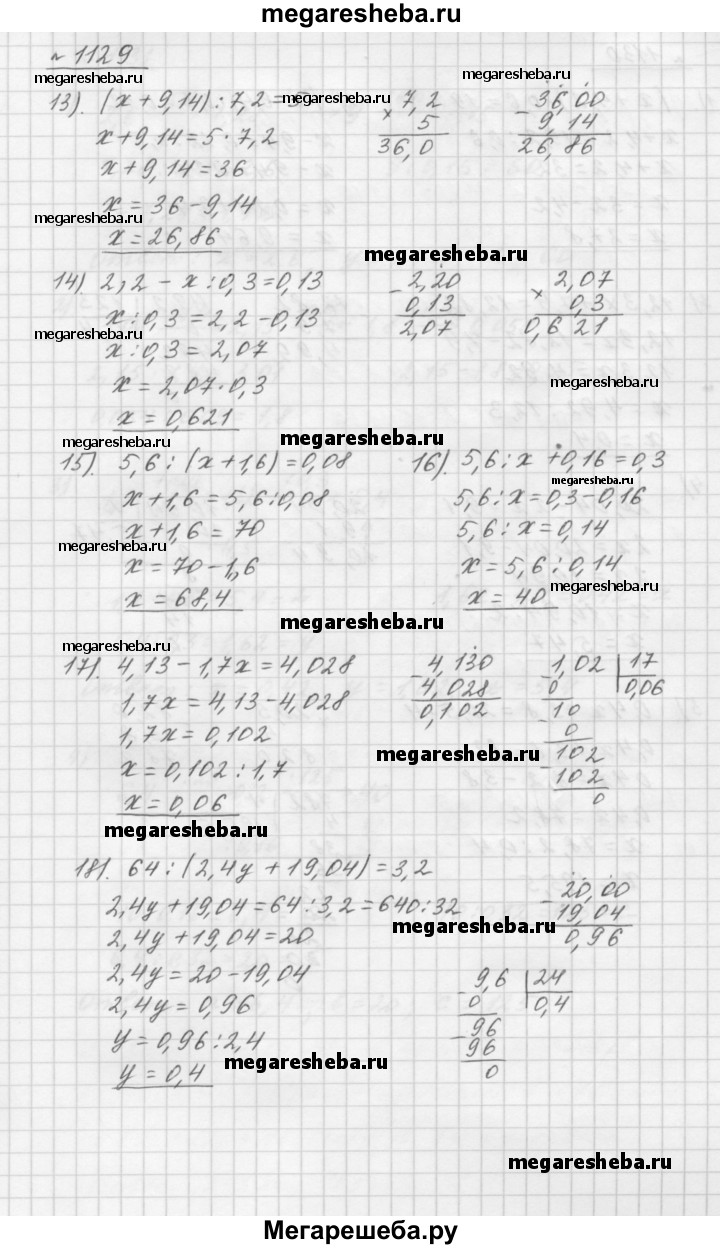 megaresheba.ru
№ 1129
megaresheba.ru
megaresheba.ru
13). (x + 9,14) : 7,2 = 5
megaresheba.ru
x + 9,14 = 5 · 7,2
x + 9,14 = 36
x = 36 - 9,14
x = 26,86
× 7,2
5
36,0
- 36,00
9,14
26,86
megaresheba.ru
megaresheba.ru
14) 2,2 - x : 0,3 = 0,13
x : 0,3 = 2,2 - 0,13
megaresheba.ru
x : 0,3 = 2,07
x = 2,07 · 0,3
x = 0,621
- 2,20
0,13
2,07
× 2,07
0,3
0,621
megaresheba.ru
megaresheba.ru
megaresheba.ru
15). 5,6 : (x + 1,6) = 0,08
x + 1,6 = 5,6 : 0,08
x + 1,6 = 70
megaresheba.ru
x = 70 - 1,6
x = 68,4
16). 5,6 : x + 0,16 = 0,3
megaresheba.ru
5,6 : x = 0,3 - 0,16
5,6 : x = 0,14
x = 5,6 : 0,14
megaresheba.ru
x = 40
megaresheba.ru
megaresheba.ru
17). 4,13 - 1,7x = 4,028
1,7x = 4,13 - 4,028
1,7x = 0,102
x = 0,102 : 1,7
x = 0,06
- 4,130
4,028
0,102
- 1,02 | 17
0 0,06
- 10
0
- 102
102
0
megaresheba.ru
megaresheba.ru
18). 64 : (2,4y + 19,04) = 3,2
2,4y + 19,04 = 64 : 3,2 = 640 : 32
2,4y + 19,04 = 20
2,4y = 20 - 19,04
2,4y = 0,96
y = 0,96 : 2,4
y = 0,4
- 20,00
19,04
0,96
megaresheba.ru
- 9,6 | 24
0 0,4
- 96
96
0
megaresheba.ru
megaresheba.ru
Мегарешеба.ру